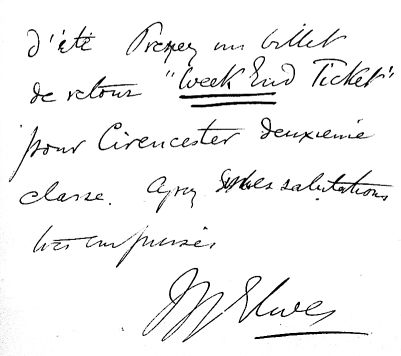 d'été Prenez un billet
de retour "Week End Ticket"
pour Cirencester deuxieme
classe. Agrez salutations
très
Elwes